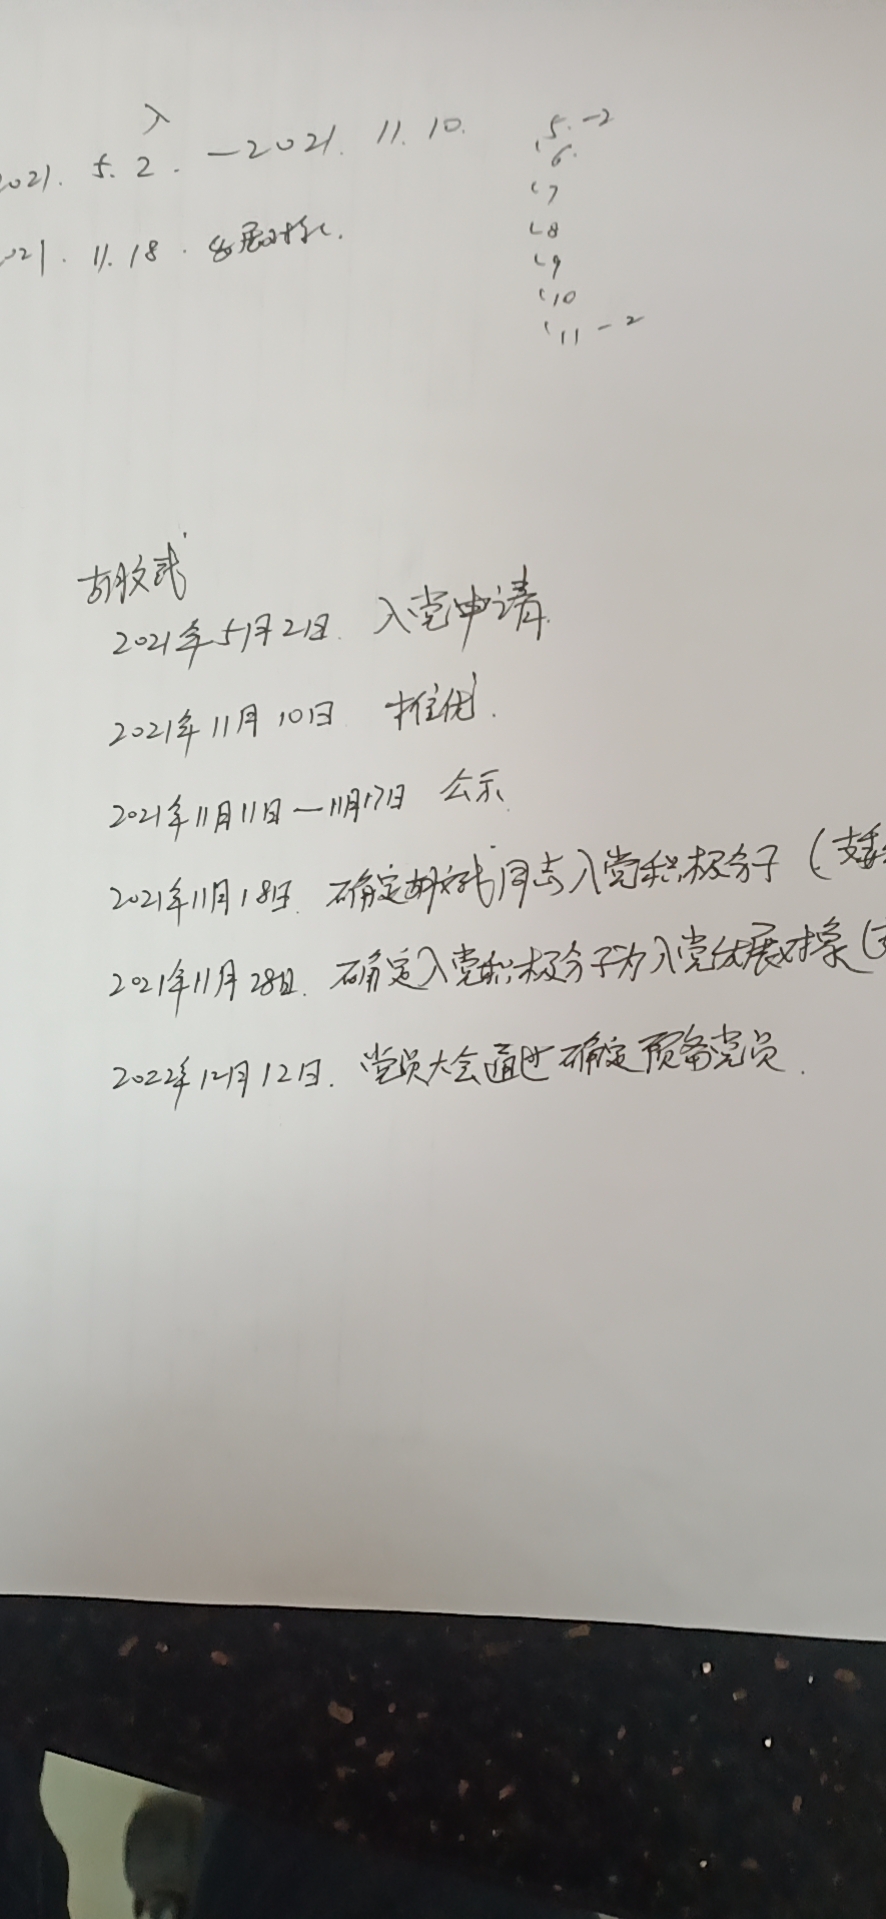 入
2021. 5. 2. —2021. 11. 10.
2021. 11. 18. 发展对象.
5. -2
6.
7
8
9
10
11 - 2
胡文武
2021年5月2日. 入党申请.
2021年11月10日 推优.
2021年11月11日—11月17日 公示
2021年11月18日. 确定胡文武同志入党积极分子（支委
2021年11月28日. 确定入党积极分子为入党发展对象（
2022年12月12日. 党员大会通过确定预备党员.